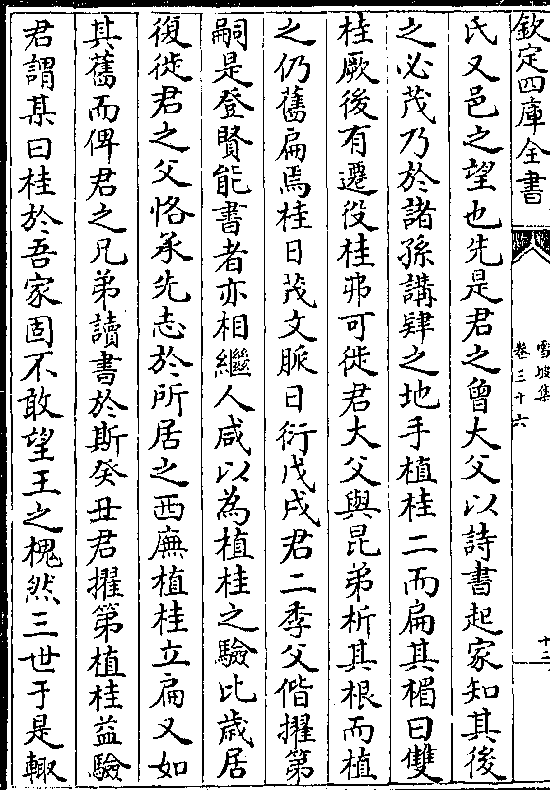 欽定四庫全書
雪坡集
卷三十六
十二
氏又邑之望也先是君之曾大父以詩書起家知其後
之必茂乃於諸孫講肄之地手植桂二而扁其楣曰雙
桂厥後有遷役桂弗可徙君大父與昆弟析其根而植
之仍舊扁焉桂日茂文脈日衍戊戌君二季父偕擢第
嗣是登賢能書者亦相繼人咸以為植桂之驗比歲居
復徙君之父恪承先志於所居之西廡植桂立扁又如
其舊而俾君之兄弟讀書於斯癸丑君擢第植桂益驗
君謂某曰桂於吾家固不敢望王之槐然三世于是輙